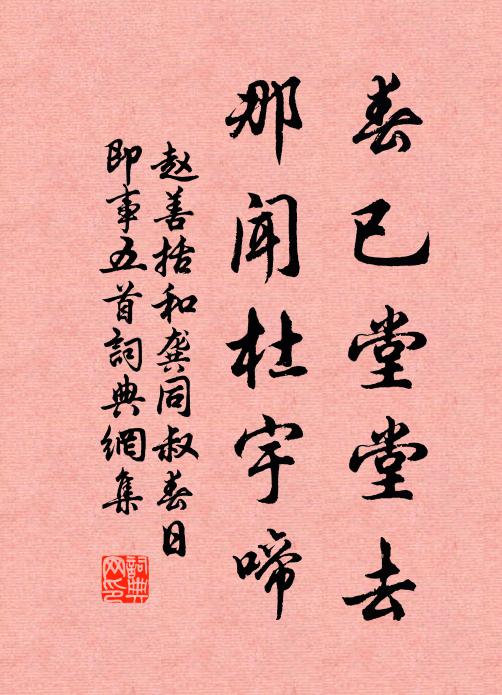 春已堂堂去
那闻杜宇啼
赵善括和龚同叔春日
即事五首詞典網集
詞典网印